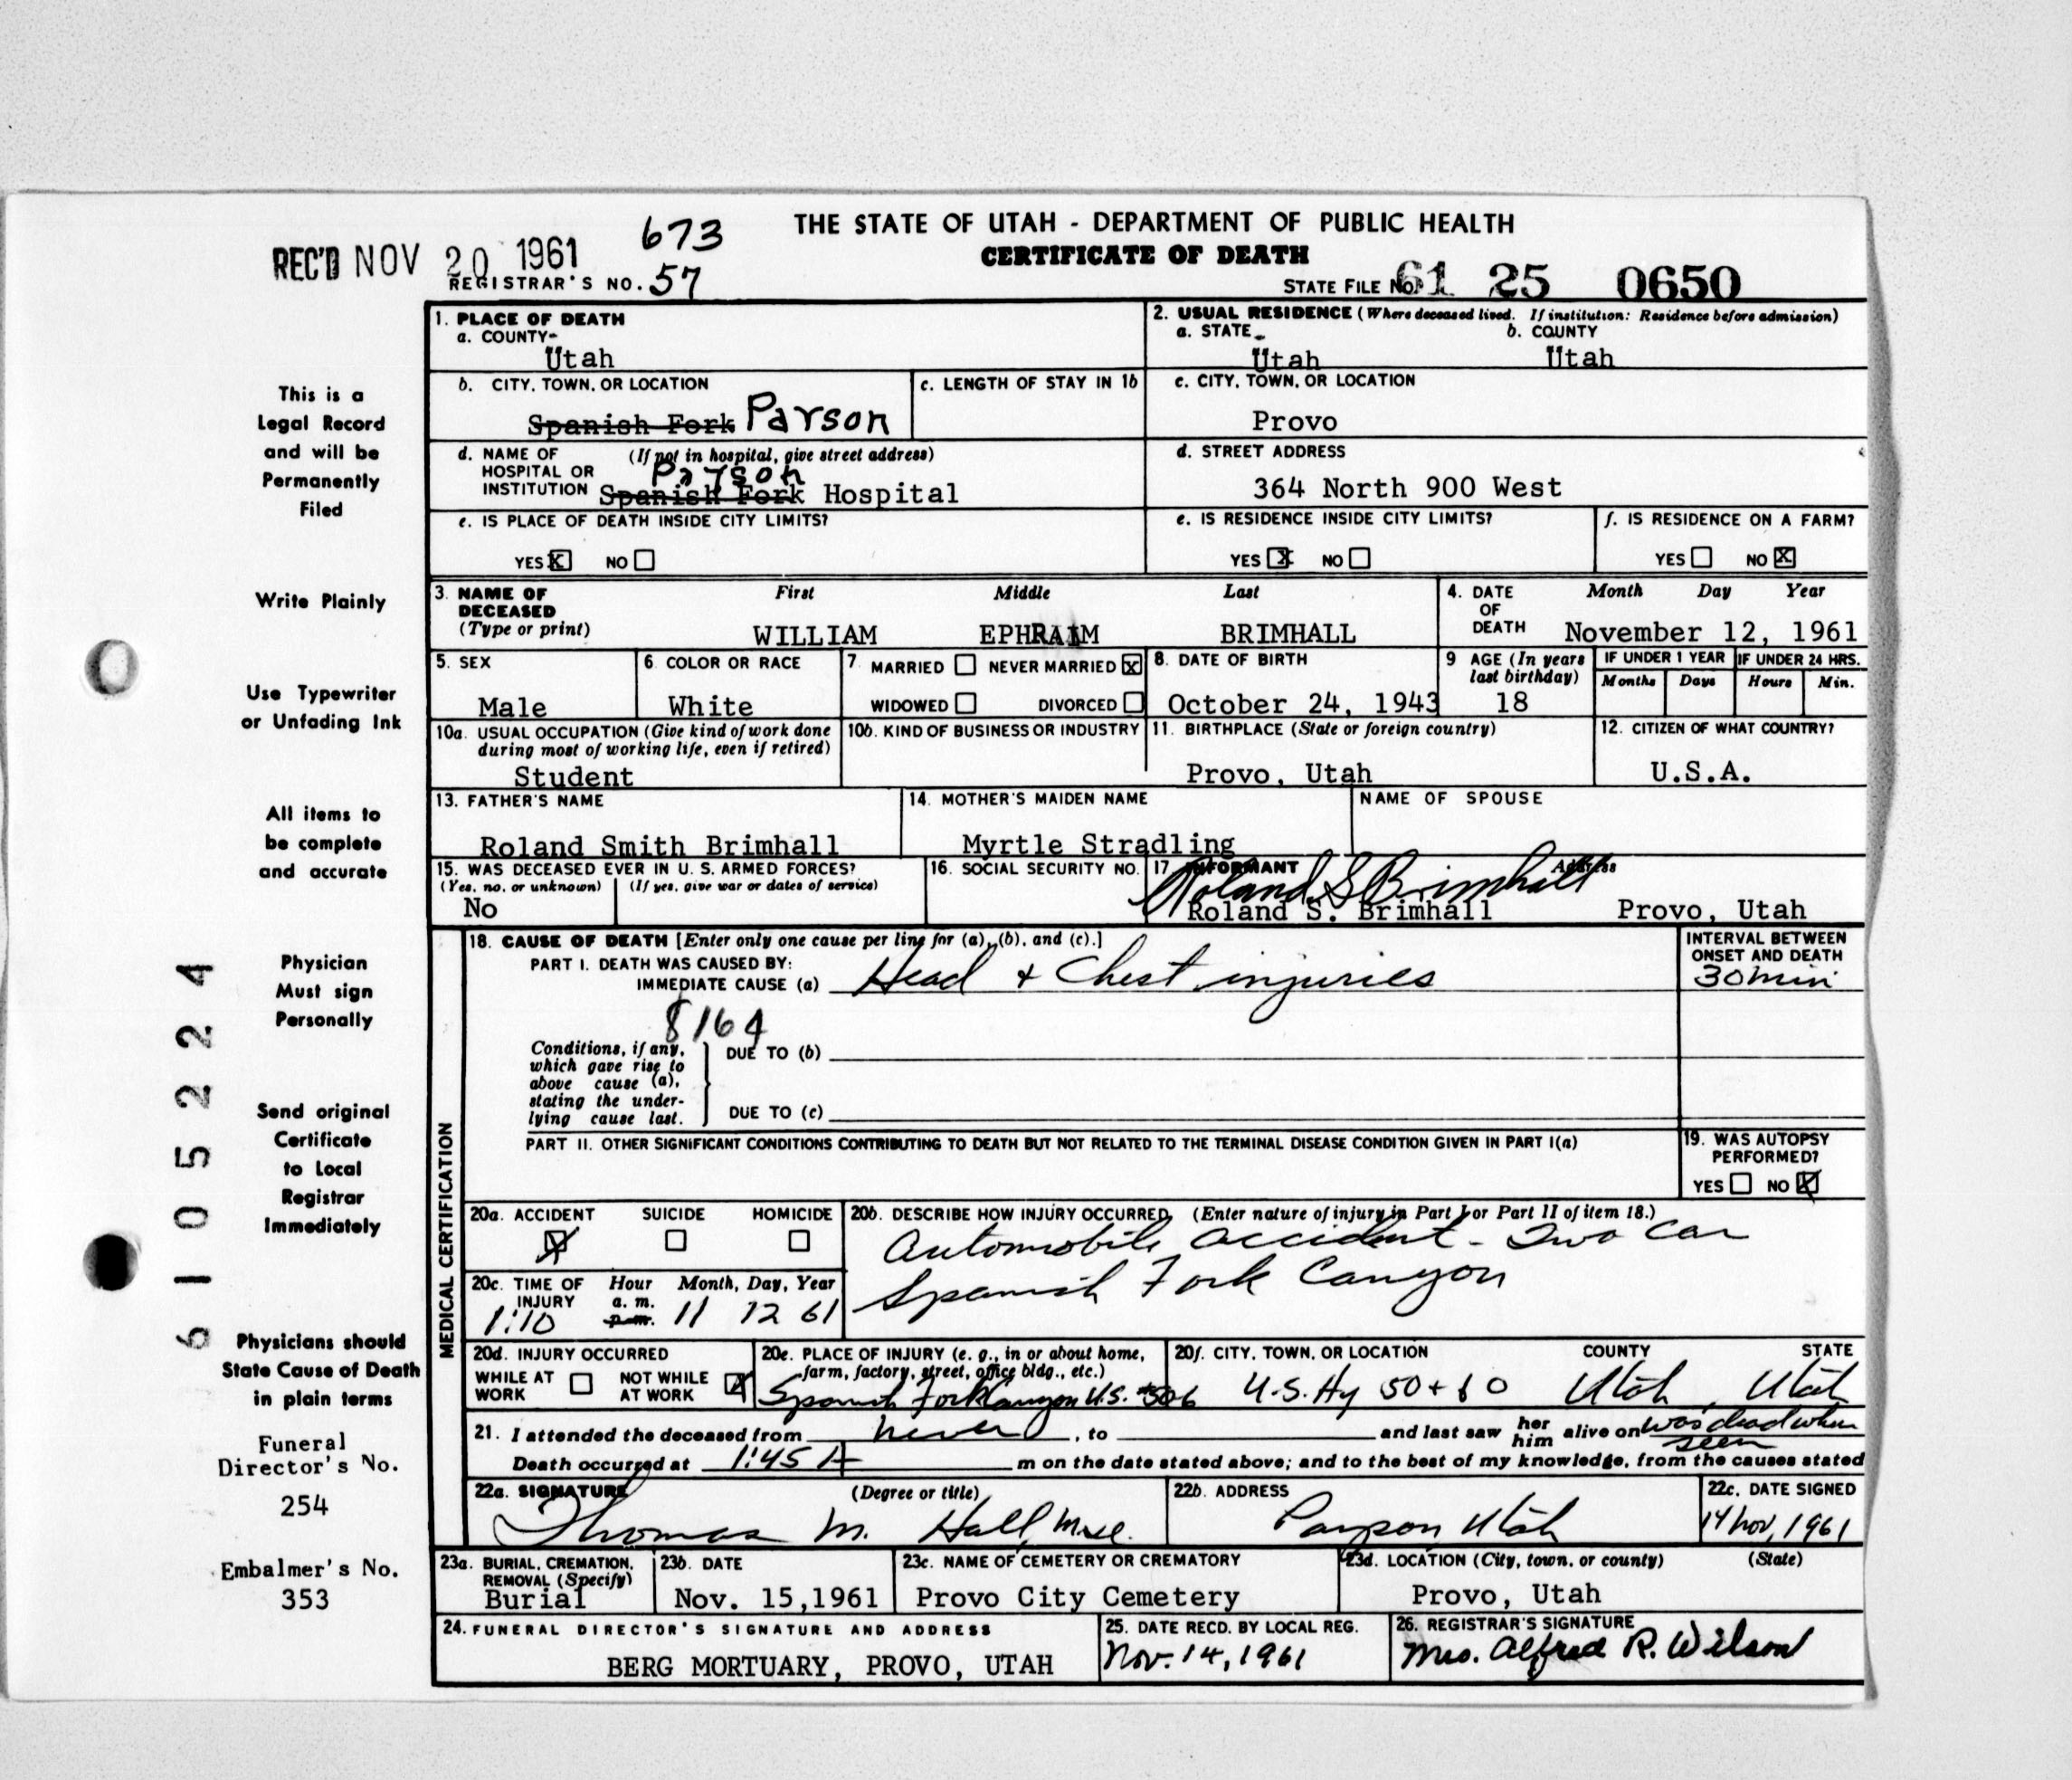 THE STATE OF UTAH - DEPARTMENT OF PUBLIC HEALTH
CERTIFICATE OF DEATH
REC'D NOV 20 1961
673
REGISTRAR'S NO. 57
STATE FILE No. 61 25 0650
This is a
Legal Record
and will be
Permanently
Filed
Write Plainly
Use Typewriter
or Unfading Ink
All items to
be complete
and accurate
Physician
Must sign
Personally
Send original
Certificate
to Local
Registrar
Immediately
Physicians should
State Cause of Death
in plain terms
Funeral
Director's No.
254
Embalmer's No.
353
6105224
1. PLACE OF DEATH
a. COUNTY
Utah
2. USUAL RESIDENCE (Where deceased lived. If institution: Residence before admission)
a. STATE b. COUNTY
Utah Utah
b. CITY, TOWN, OR LOCATION
Spanish Fork Payson
c. LENGTH OF STAY IN 1b
c. CITY, TOWN, OR LOCATION
Provo
d. NAME OF (If not in hospital, give street address)
HOSPITAL OR Payson
INSTITUTION Spanish Fork Hospital
d. STREET ADDRESS
364 North 900 West
e. IS PLACE OF DEATH INSIDE CITY LIMITS?
YES X NO
e. IS RESIDENCE INSIDE CITY LIMITS?
YES X NO
f. IS RESIDENCE ON A FARM?
YES NO X
3. NAME OF First Middle Last
DECEASED
(Type or print) WILLIAM EPHRAIM BRIMHALL
4. DATE Month Day Year
OF
DEATH November 12, 1961
5. SEX
Male
6. COLOR OR RACE
White
7. MARRIED NEVER MARRIED X
WIDOWED DIVORCED
8. DATE OF BIRTH
October 24, 1943
9 AGE (In years
last birthday)
18
IF UNDER 1 YEAR IF UNDER 24 HRS.
Months Days Hours Min.
10a. USUAL OCCUPATION (Give kind of work done
during most of working life, even if retired)
Student
10b. KIND OF BUSINESS OR INDUSTRY
11. BIRTHPLACE (State or foreign country)
Provo, Utah
12. CITIZEN OF WHAT COUNTRY?
U.S.A.
13. FATHER'S NAME
Roland Smith Brimhall
14. MOTHER'S MAIDEN NAME
Myrtle Stradling
NAME OF SPOUSE
15. WAS DECEASED EVER IN U. S. ARMED FORCES?
(Yes, no, or unknown) (If yes, give war or dates of service)
No
16. SOCIAL SECURITY NO.
17. INFORMANT Address
Roland S Brimhall
Roland S. Brimhall Provo, Utah
MEDICAL CERTIFICATION
18. CAUSE OF DEATH [Enter only one cause per line for (a), (b), and (c).]
PART I. DEATH WAS CAUSED BY:
IMMEDIATE CAUSE (a) Head + Chest injuries
INTERVAL BETWEEN
ONSET AND DEATH
30 min
8164
Conditions, if any,
which gave rise to
above cause (a),
stating the under-
lying cause last.
DUE TO (b)
DUE TO (c)
PART II. OTHER SIGNIFICANT CONDITIONS CONTRIBUTING TO DEATH BUT NOT RELATED TO THE TERMINAL DISEASE CONDITION GIVEN IN PART I(a)
19. WAS AUTOPSY
PERFORMED?
YES NO X
20a. ACCIDENT SUICIDE HOMICIDE
X
20b. DESCRIBE HOW INJURY OCCURRED. (Enter nature of injury in Part I or Part II of item 18.)
Automobile accident - Two Car
Spanish Fork Canyon
20c. TIME OF Hour Month, Day, Year
INJURY a. m.
1:10 p.m. 11 12 61
20d. INJURY OCCURRED
WHILE AT NOT WHILE
WORK AT WORK X
20e. PLACE OF INJURY (e. g., in or about home,
farm, factory, street, office bldg., etc.)
Spanish Fork Canyon U.S.
20f. CITY, TOWN, OR LOCATION COUNTY STATE
U.S. Hy 50 + 60 Utah, Utah
21. I attended the deceased from never, to and last saw her him alive on was dead when seen
Death occurred at 1:45 A m on the date stated above; and to the best of my knowledge, from the causes stated
22a. SIGNATURE (Degree or title)
Thomas M. Hall,
22b. ADDRESS
Payson, Utah
22c. DATE SIGNED
14 Nov, 1961
23a. BURIAL, CREMATION,
REMOVAL (Specify)
Burial
23b. DATE
Nov. 15,1961
23c. NAME OF CEMETERY OR CREMATORY
Provo City Cemetery
23d. LOCATION (City, town, or county) (State)
Provo, Utah
24. FUNERAL DIRECTOR'S SIGNATURE AND ADDRESS
BERG MORTUARY, PROVO, UTAH
25. DATE RECD. BY LOCAL REG.
Nov. 14, 1961
26. REGISTRAR'S SIGNATURE
Mrs. Alfred R. Wilson